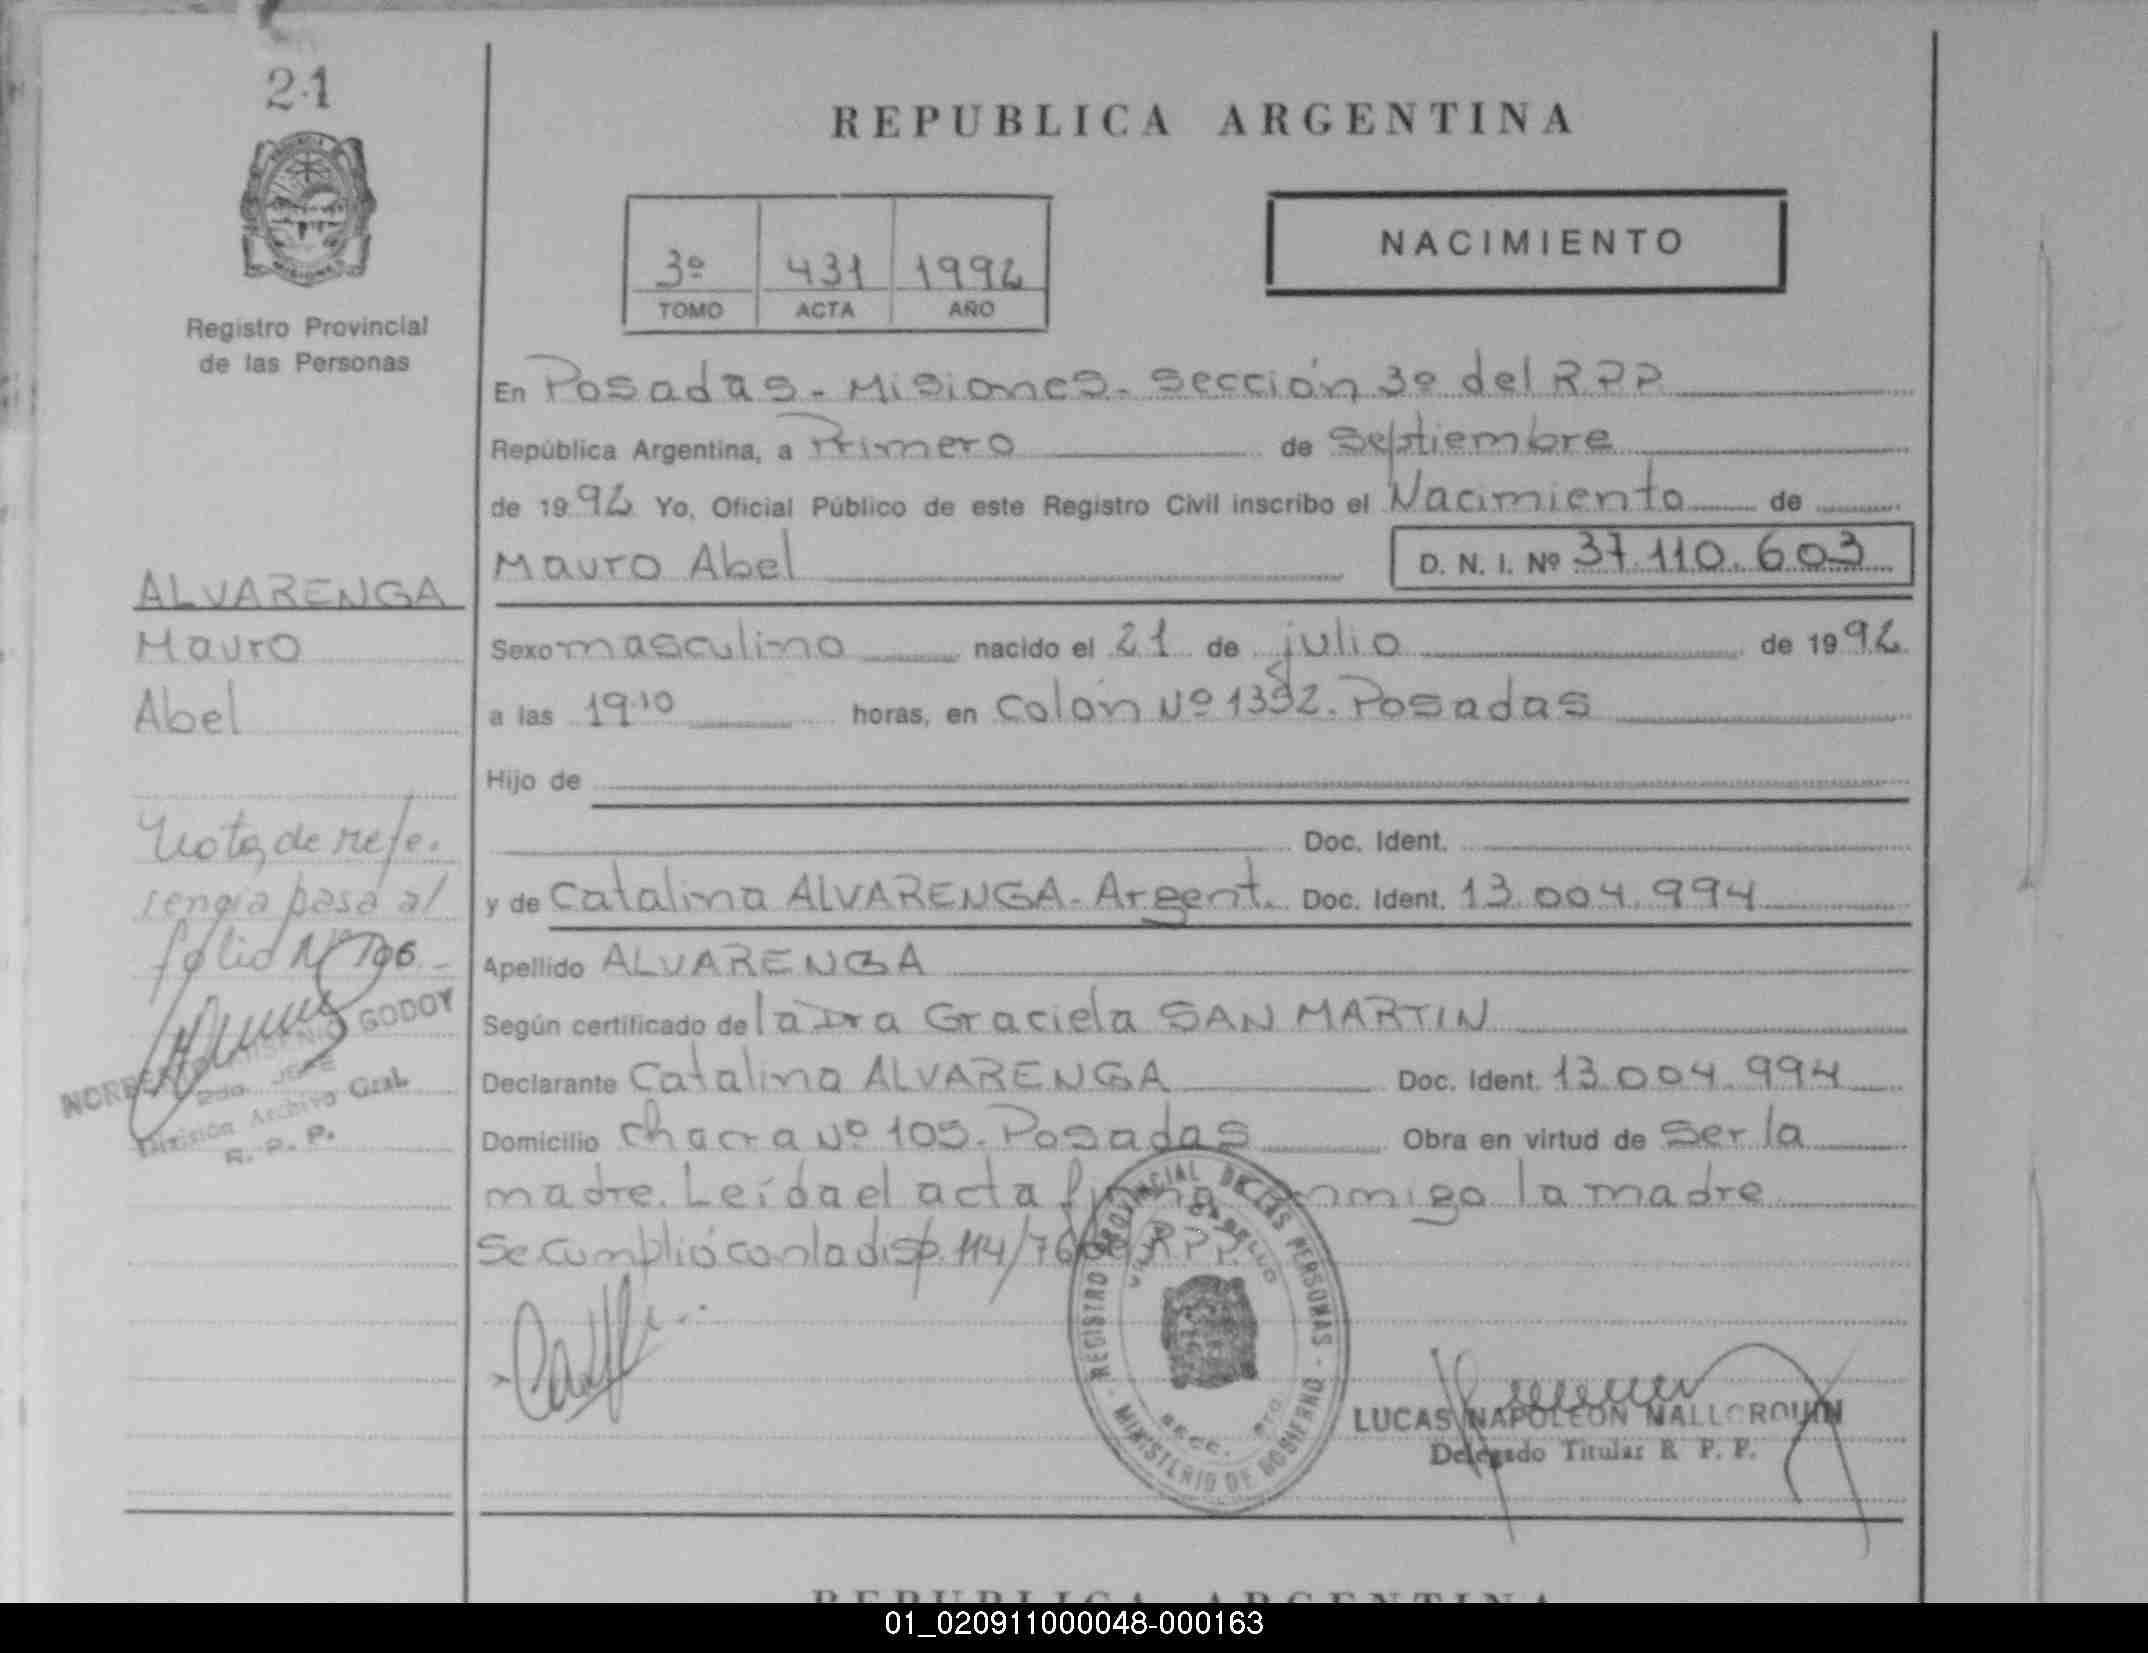 21
Registro Provincial
de las Personas
REPUBLICA ARGENTINA
3º 431 1992
TOMO ACTA AÑO
NACIMIENTO
En Posadas - Misiones - Sección 3º del R.P.P
República Argentina, a Primero de Septiembre
de 1992 Yo, Oficial Público de este Registro Civil inscribo el Nacimiento de
Mauro Abel D. N. I. Nº 37.110.603
Sexo masculino nacido el 21 de julio de 1992
a las 19 10 horas, en Colón Nº 1392. Posadas
Hijo de
Doc. Ident.
y de Catalina ALVARENGA - Argent. Doc. Ident. 13.004.994
Apellido ALVARENGA
Según certificado de la Dra Graciela SAN MARTIN
Declarante Catalina ALVARENGA Doc. Ident. 13.004.994
Domicilio Chacra Nº 105. Posadas Obra en virtud de Ser la
madre. Leída el acta la madre
Se cumplió con la disp. 114/76 R.P.P.
REGISTRO PROVINCIAL DE LAS PERSONAS - MINISTERIO DE GOBIERNO -
LUCAS NAPOLEON MALLORQUIN
Delegado Titular R. P. P.
ALVARENGA
Mauro
Abel
Nota de refe.
rencia pasa al
folio Nº 196.
GODOY
2do. JEFE
División Archivo Gral.
R. P. P.
REPUBLICA ARGENTINA
01_020911000048-000163